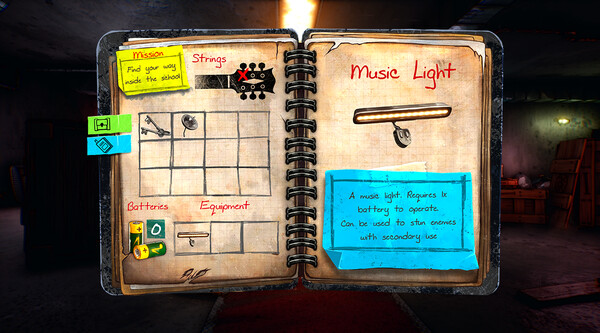 Mission
Find your way
inside the school
Strings
Batteries
0
Equipment
Music Light
A music light. Requires 1x
battery to operate.
Can be used to stun enemies
with secondary use